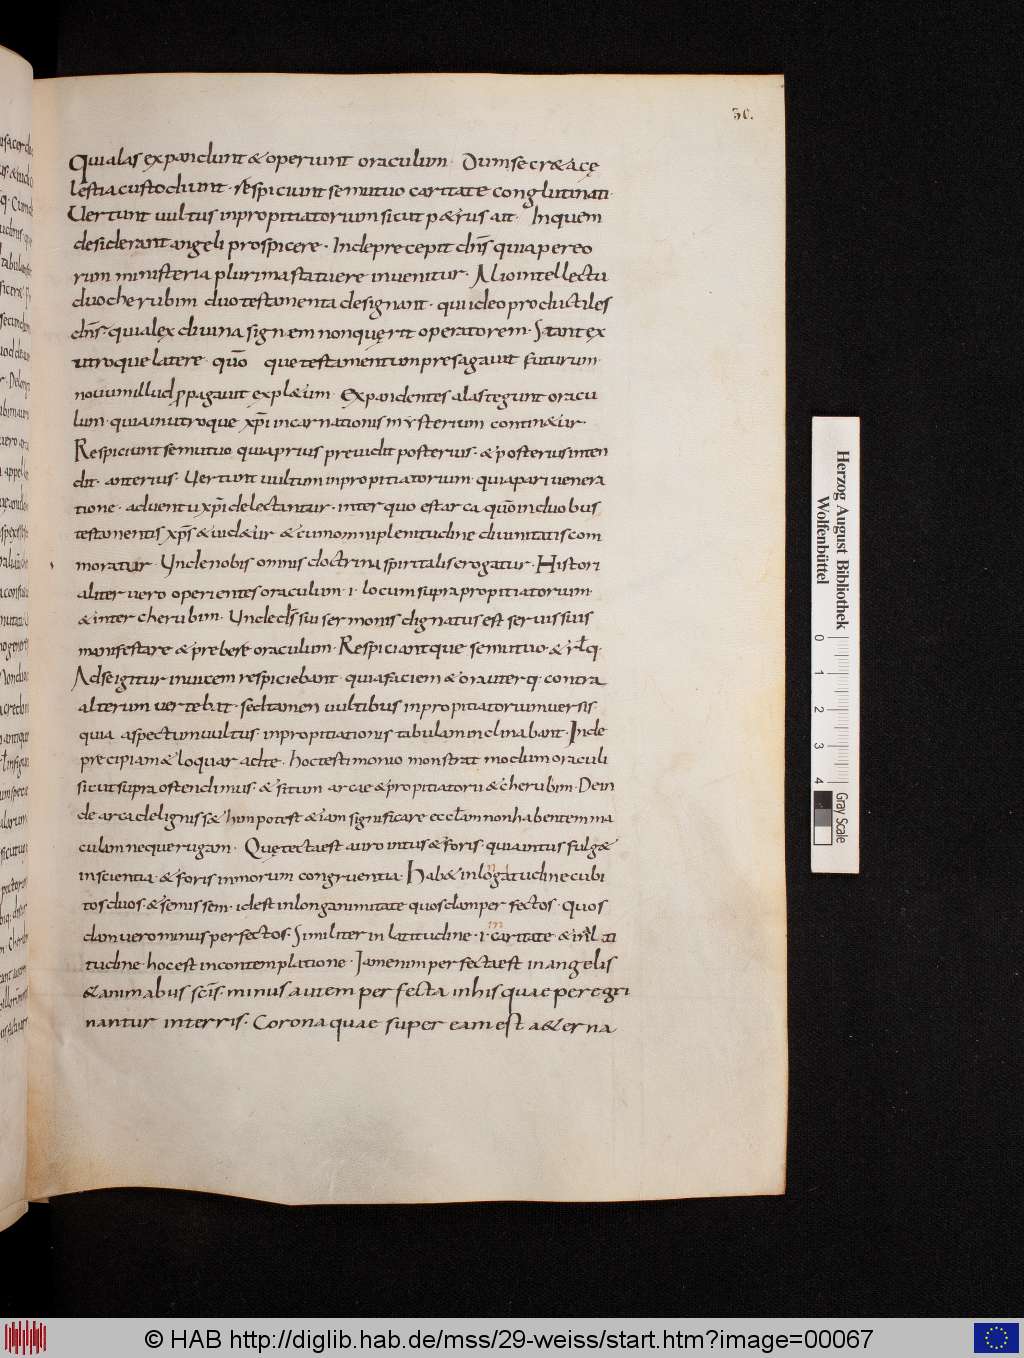 30.
Qui alas expandunt & operiunt oraculum. Dum secr&a cę
lestia custodiunt. respiciunt se mutuo caritate conglutinati.
Uertunt uultus in propitiatorium sicut p&rus ait. In quem
desiderant angeli prospicere. Inde precepit dn̄s quia per eo
rum ministeria plurima statuere inuenitur. Alio intellectu
duo cherubim duo testamenta designant. qui ideo productiles
dn̄s. quia lex diuina signem non quęrit operatorem. Stant ex
utroque latere. quō que testamentum presagauit futurum
nouum illud ꝓpagauit expl&um. Expandentes alas tegunt oracu
lum. quia in utroque xp̄i incarnationis mysterium contin&ur.
Respiciunt se mutuo quia prius preuidit posterius. & posterius inten
dit anterius. Uertunt uultum in propitiatorium. quia pari uenera
tione aduentu xp̄i delectantur. inter quo est arca quō in duobus
testamentis xp̄s & iud&ur & cum omni plenitudine diuinitatis com
moratur. Unde nobis omnis doctrina spiritalis erogatur. Histori
aliter uero operientes oraculum .i. locum supra propitiatorium
& inter cherubim. Unde dn̄s sui sermonis dignatus est seruis suis
manifestare & prebere oraculum. Respiciantque se mutuo. & rł q.
Ad se igitur inuicem respiciebant. quia faciem & ora uterq. contra
alterum uertebat. sed tamen uultibus in propitiatorium uersis.
quia aspectum uultus in propitiationis tabulam inclinabant. Inde
precipiam & loquar ad te. hoc testimonio monstrat modum oraculi
sicut supra ostendimus. & situm arcae & propitiatorii & cherubim. Dein
de arca de lignis s&him potest & iam significare ecclam non habentem ma
culam neque rugam. Quę tecta est auro intus & foris. quia intus fulg&
in scientia & foris in morum congruentia. Hab& in longatudine cubi
tos duos & semissem. id est in longanimitate quosdam perfectos. quos
dam uero minus perfectos. Similiter in latitudine .i. in caritate & in al ti
tudine hoc est in contemplatione. Iam enim perfecta est in angelis
& animabus scīs. minus autem perfecta in his quae peregri
nantur in terris. Corona quae super eam est a&erna
Herzog August Bibliothek
Wolfenbüttel
0 1 2 3 4
Gray Scale
© HAB http://diglib.hab.de/mss/29-weiss/start.htm?image=00067